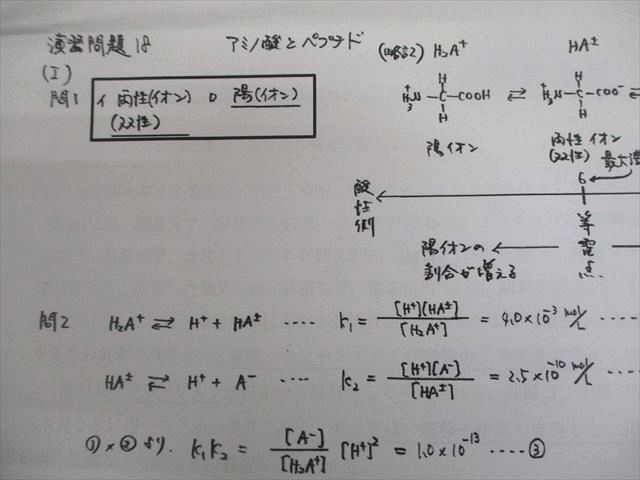 演習問題18 アミノ酸とペプチド
(I)
問1 イ 両性(イオン) ロ 陽(イオン)
(双性)
H₂A⁺ HA±
H₃⁺N-C-COOH ⇄ H₃⁺N-C-COO⁻ ⇄
H H
H H
陽イオン 両性イオン
(双性) 最大
6
酸性側
等電点
陽イオンの
割合が増える
問2 H₂A⁺ ⇄ H⁺ + HA± ‥‥ K₁ = [H⁺][HA±]/[H₂A⁺] = 4.0×10⁻³ mol/L ‥‥
HA± ⇄ H⁺ + A⁻ ‥‥ K₂ = [H⁺][A⁻]/[HA±] = 2.5×10⁻¹⁰ mol/L ‥‥
①×②より. K₁K₂ = [A⁻]/[H₂A⁺] [H⁺]² = 1.0×10⁻¹³ ‥‥③